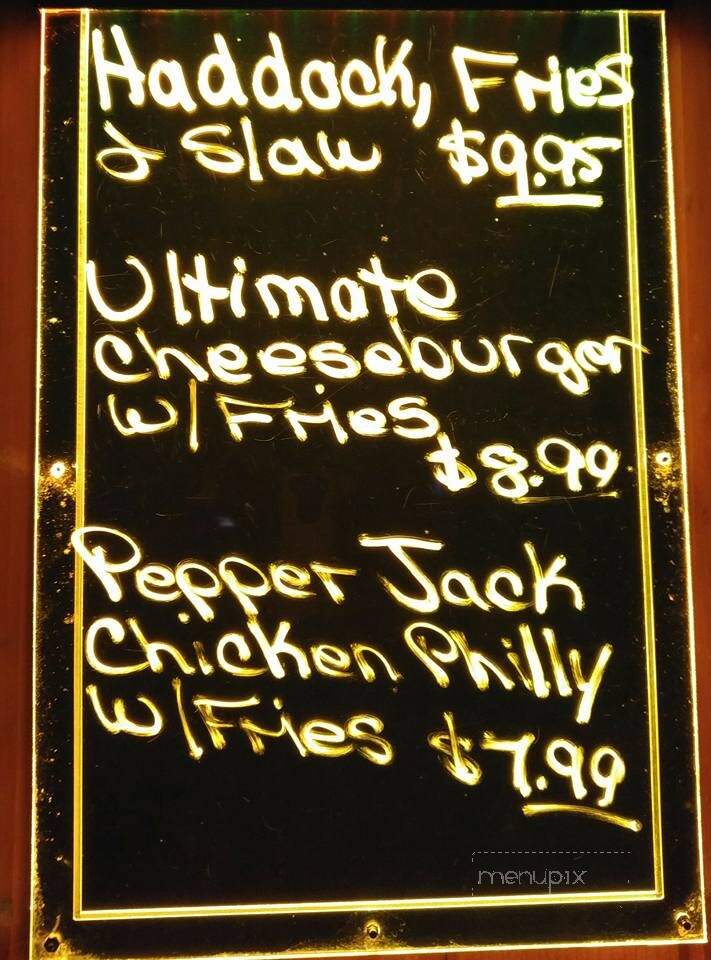 Haddock, Fries
& Slaw $9.95
Ultimate
Cheeseburger
w/Fries
$8.99
Pepper Jack
Chicken Philly
w/Fries $7.99
menupix